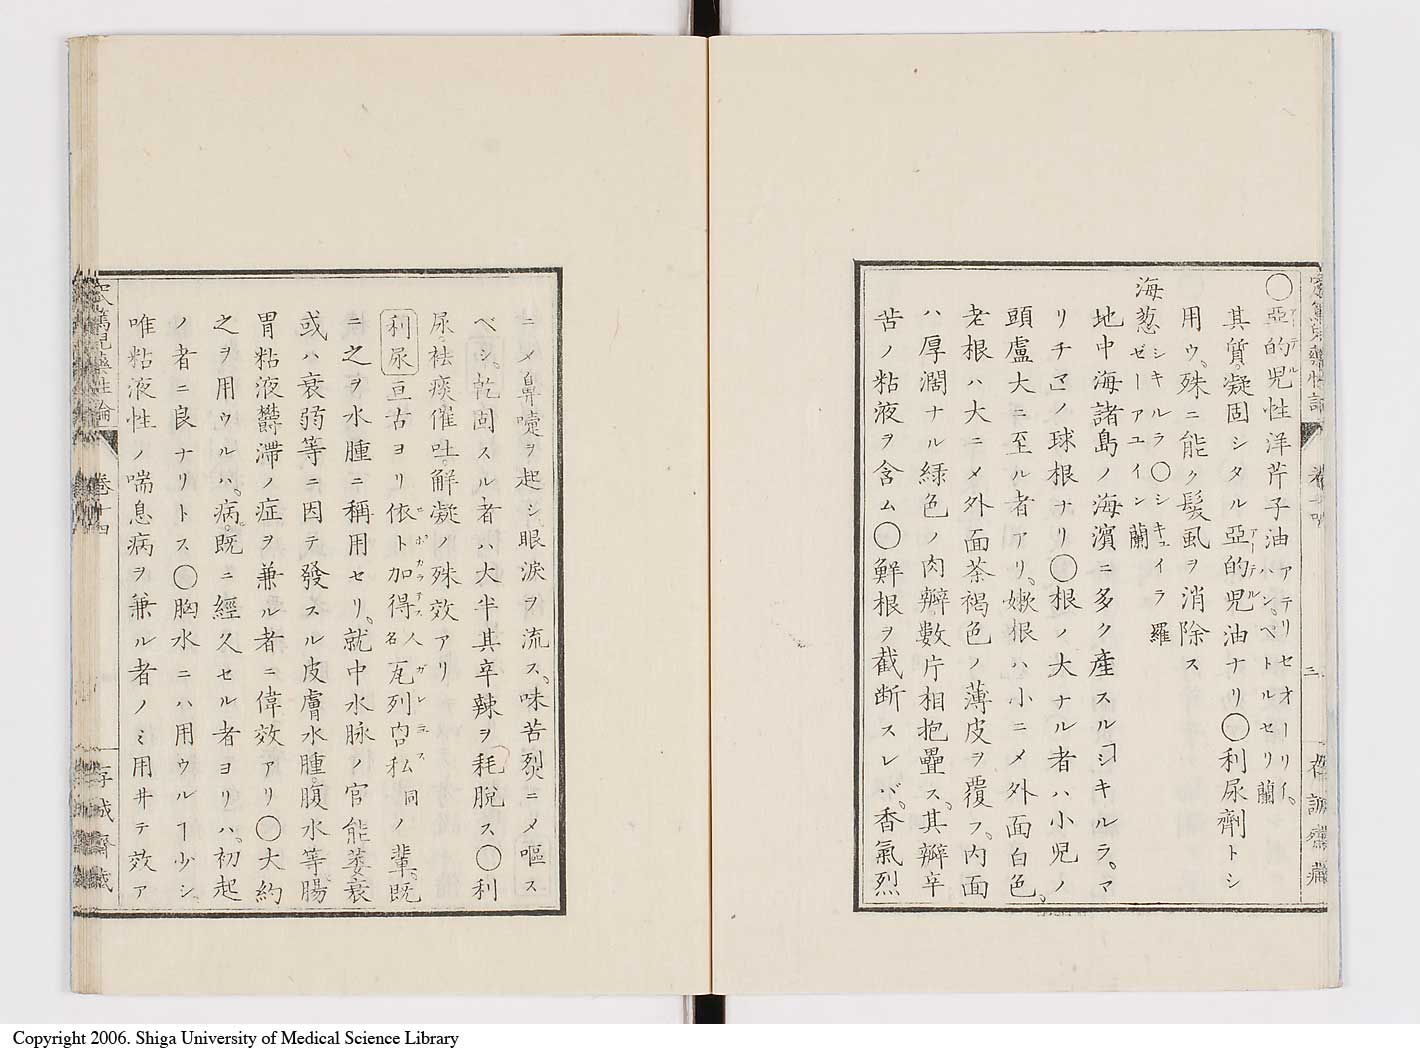 〇亞的兒性洋芹子油アテリセオーリイ。ハン、ペトルセリ蘭
アーテル
其質凝固シタル亞的兒油ナリ〇利尿劑トシ
アーテル
用ウ。殊ニ能ク髮虱ヲ消除ス
海葱シキルラ〇シキュイラ羅
ゼーアユイン蘭
地中海諸島ノ海濱ニ多ク產スルヿシキルラ。マ
リチマノ球根ナリ〇根ノ大ナル者ハ小兒ノ
頭盧大ニ至ル者アリ。嫰根ハ小ニメ外面白色。
老根ハ大ニメ外面茶褐色ノ薄皮ヲ覆フ。内面
ハ厚濶ナル緑色ノ肉瓣數片相抱疊ス。其瓣辛
苦ノ粘液ヲ含ム〇鮮根ヲ截断スレバ。香氣烈
三
ニメ鼻嚏ヲ起シ眼淚ヲ流ス。味苦烈ニメ嘔ス
ベシ。乾固スル者ハ大半其辛辣ヲ耗脱ス〇利
尿。祛痰催吐。解凝ノ殊效アリ
利尿 亘古ヨリ依卜加得人名瓦列奴私同ノ輩。既
ヒポカラテス ガレニュス
ニ之ヲ水腫ニ稱用セリ。就中水脉ノ官能萎衰
或ハ衰弱等ニ因テ發スル皮膚水腫。腹水等腸
胃粘液欝滯ノ症ヲ兼ル者ニ偉效アリ〇大約
之ヲ用ウルハ。病。既ニ經久セル者ヨリハ。初起
ノ者ニ良ナリトス〇胸水ニハ用ウルヿ少シ
唯粘液性ノ喘息病ヲ兼ル者ノミ用井テ效ア
窊篤兒藥性論 卷十四
存誠齋藏